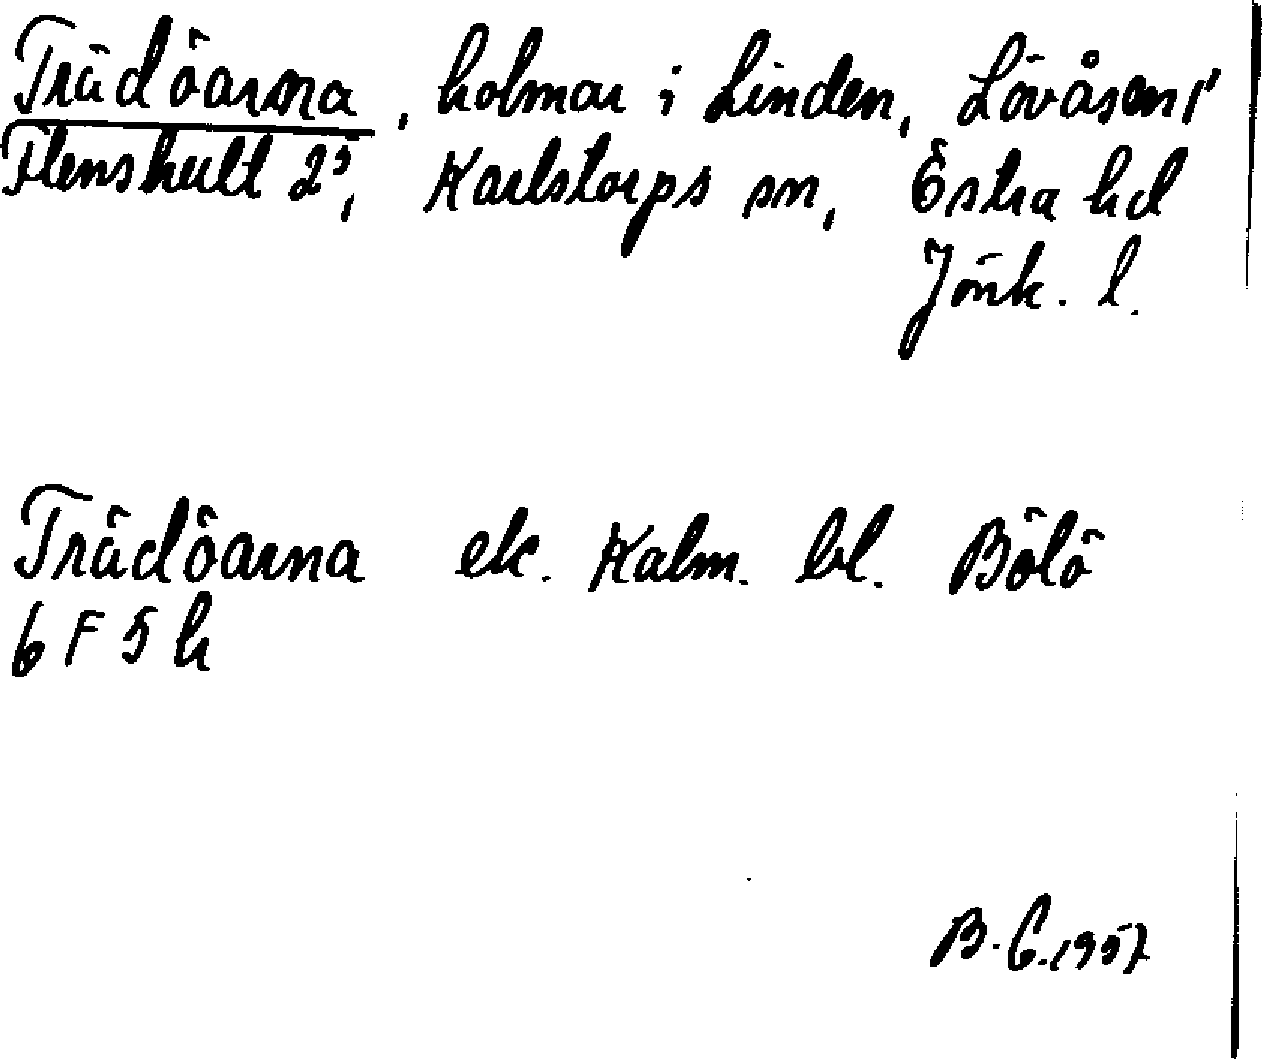 Trädöarna, holmar i Linden, Lövåsen 1¹
Flenshult 2³, Karlstorps sn, Östra hd
Jönk. l.
Trädöarna ek. Kalm. bl. Bölö
6 F 5 h
B. G. 1957